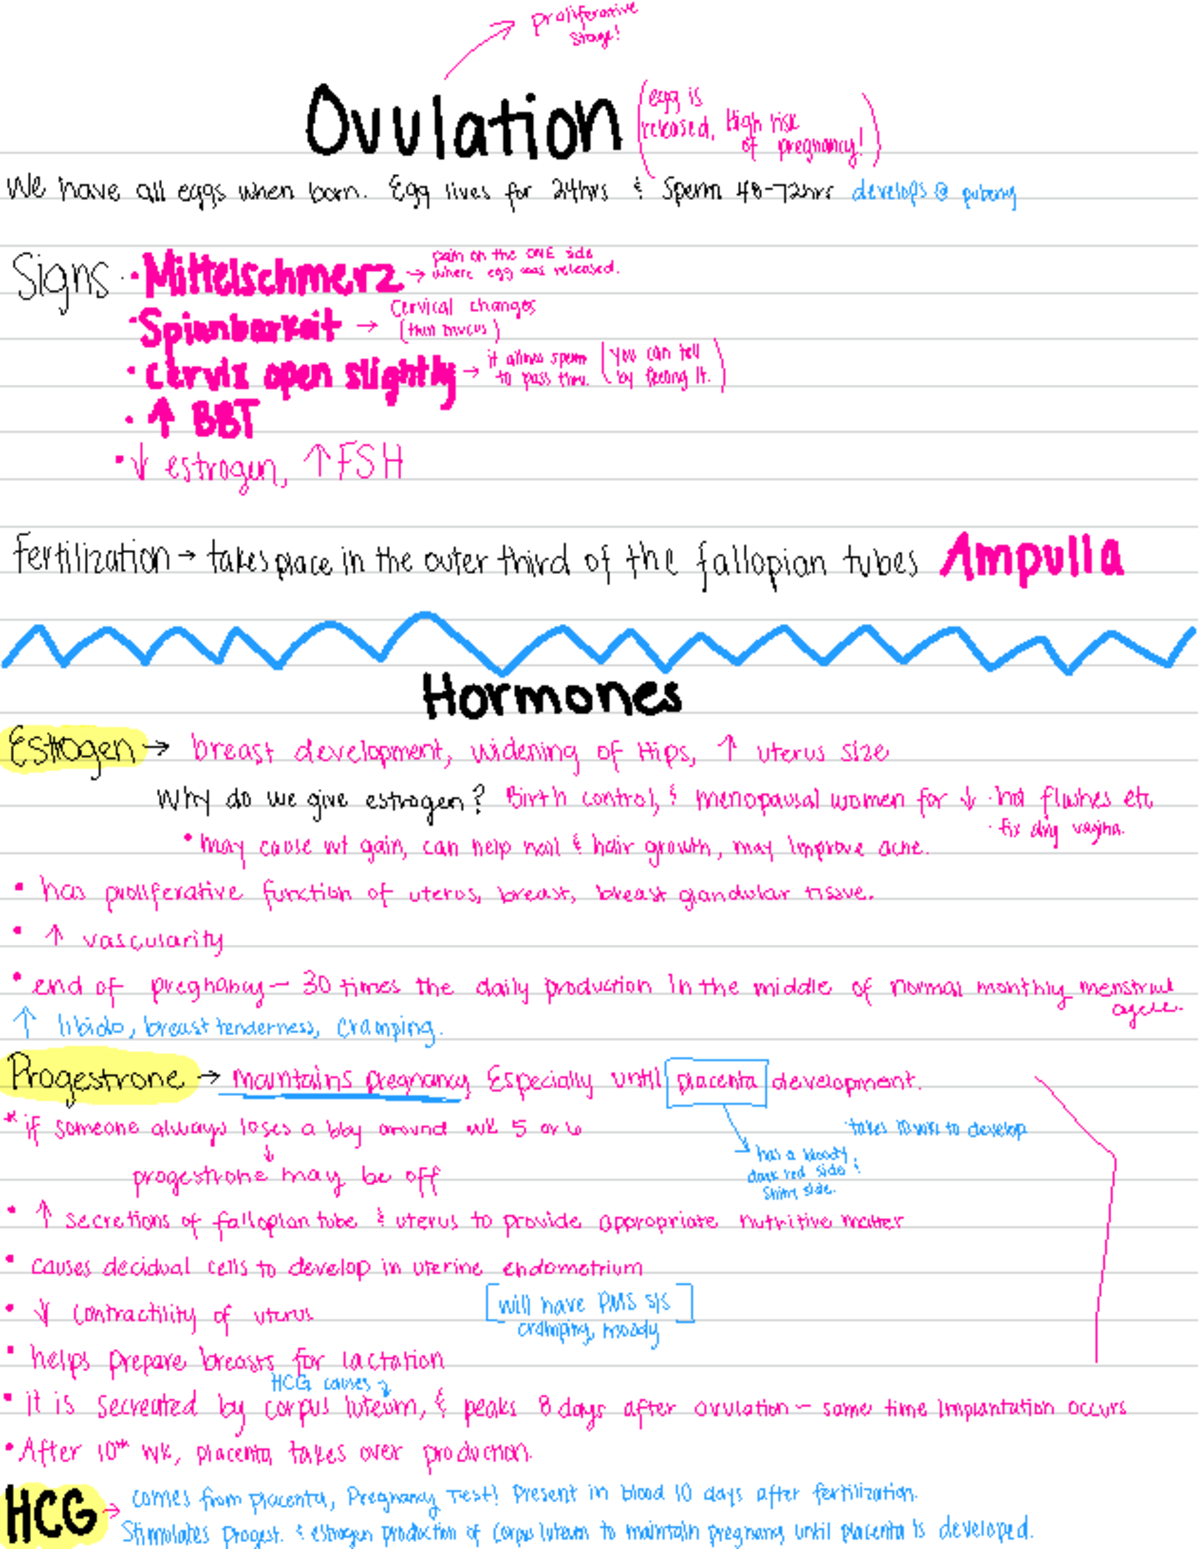 proliferative
stage!
Ovulation (egg is
released, High risk
of pregnancy!)
We have all eggs when born. Egg lives for 24hrs & Sperm 48-72hrs develops @ puberty
Signs · Mittelschmerz → pain on the ONE side
where egg was released.
· Spinnbarkeit → Cervical changes
(thin mucus)
· cervix open slightly → it allows sperm (you can tell
to pass thru. by feeling it.)
· ↑ BBT
· ↓ estrogen, ↑ FSH
Fertilization → takes place in the outer third of the fallopian tubes Ampulla
Hormones
Estrogen → breast development, widening of Hips, ↑ uterus size
Why do we give estrogen? Birth control, & menopausal women for ↓ · hot flushes etc
· fix dry vagina.
• may cause wt gain, can help nail & hair growth, may improve acne.
• has proliferative function of uterus, breast, breast glandular tissue.
• ↑ vascularity
• end of pregnancy - 30 times the daily production in the middle of normal monthly menstrual
cycle.
↑ libido, breast tenderness, cramping.
Progestrone → maintains pregnancy Especially until placenta development.
* if someone always loses a bby around wk 5 or 6
· takes 10 wks to develop
↓
→ has a bloody,
progestrone may be off
dark red side &
shiny side.
• ↑ secretions of fallopian tube & uterus to provide appropriate nutritive matter
• causes decidual cells to develop in uterine endometrium
• ↓ contractility of uterus [will have PMS s/s]
cramping, moody
• helps prepare breasts for lactation
HCG causes
• It is secreated by corpus luteum, & peaks 8 days after ovulation - same time implantation occurs
• After 10th wk, placenta takes over production.
HCG → comes from placenta, Pregnancy Test! Present in blood 10 days after fertilization.
Stimulates progest. & estrogen production of corpus luteum to maintain pregnancy until placenta is developed.